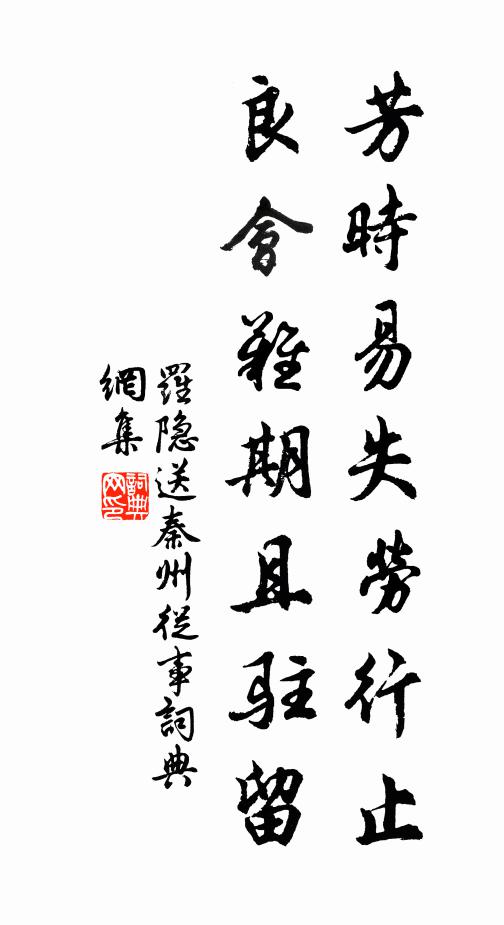 芳時易失勞行止
良會難期且駐留
羅隐送秦州從事詞典
網集
詞典
网印